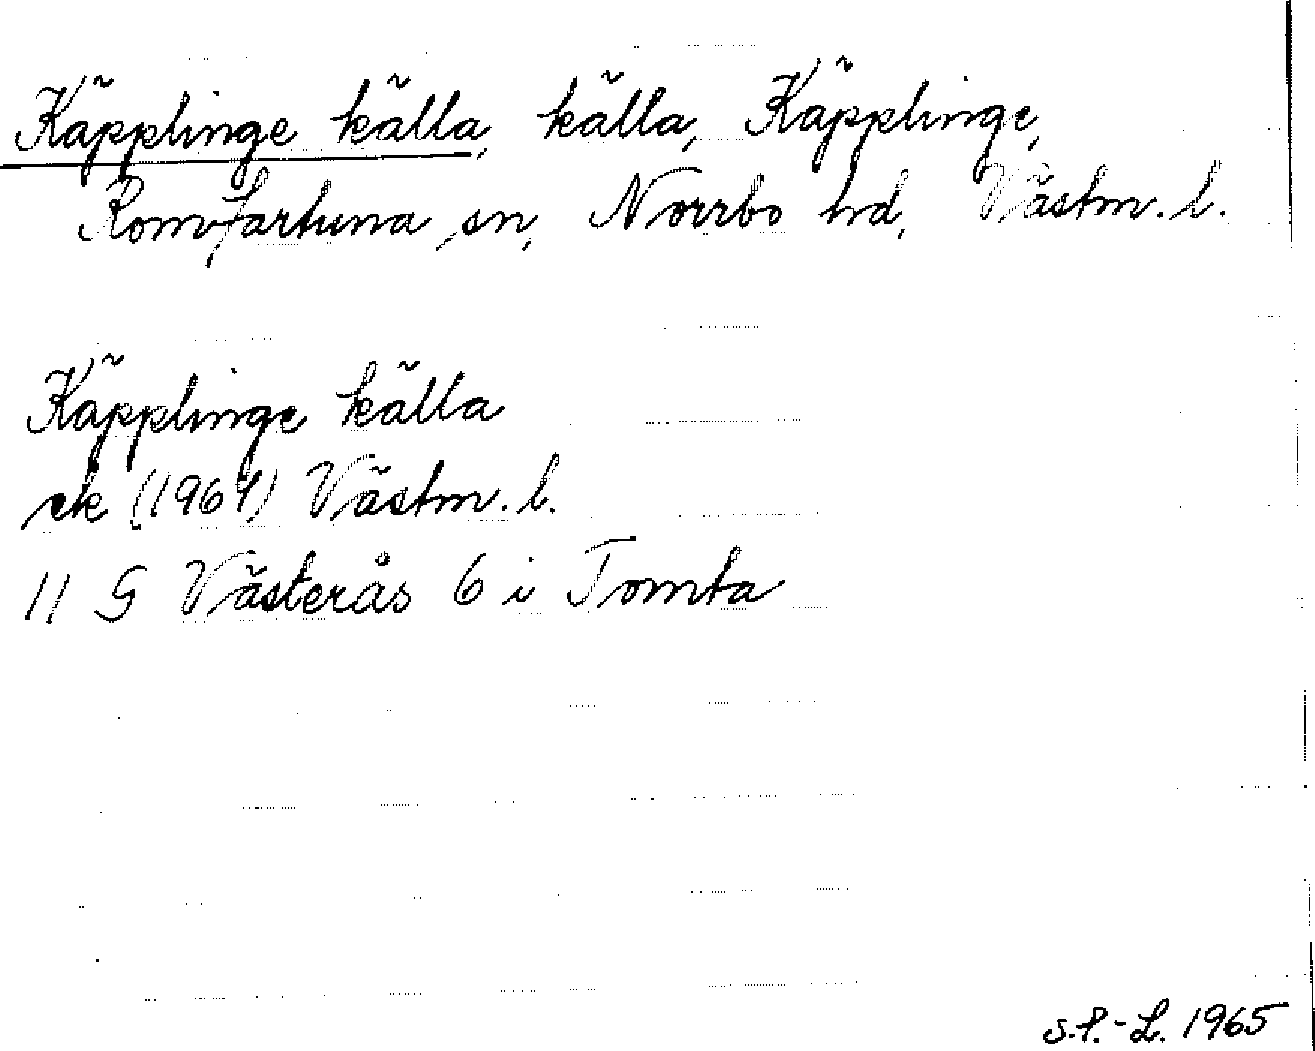 Käpplinge källa, källa, Käpplinge,
Romfartuna sn, Norrbo hd, Västm. l.
Käpplinge källa
ek (1964) Västm. l.
11 G Västerås 6 i Tomta
S.f.-L. 1965